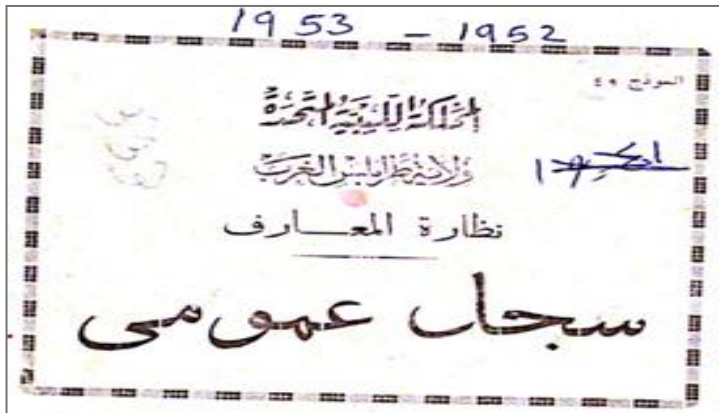 1953 - 1952
النموذج ٤٩
المملكة الليبية المتحدة
ولاية طرابلس الغرب
نظارة المعـــارف
سجل عمومى